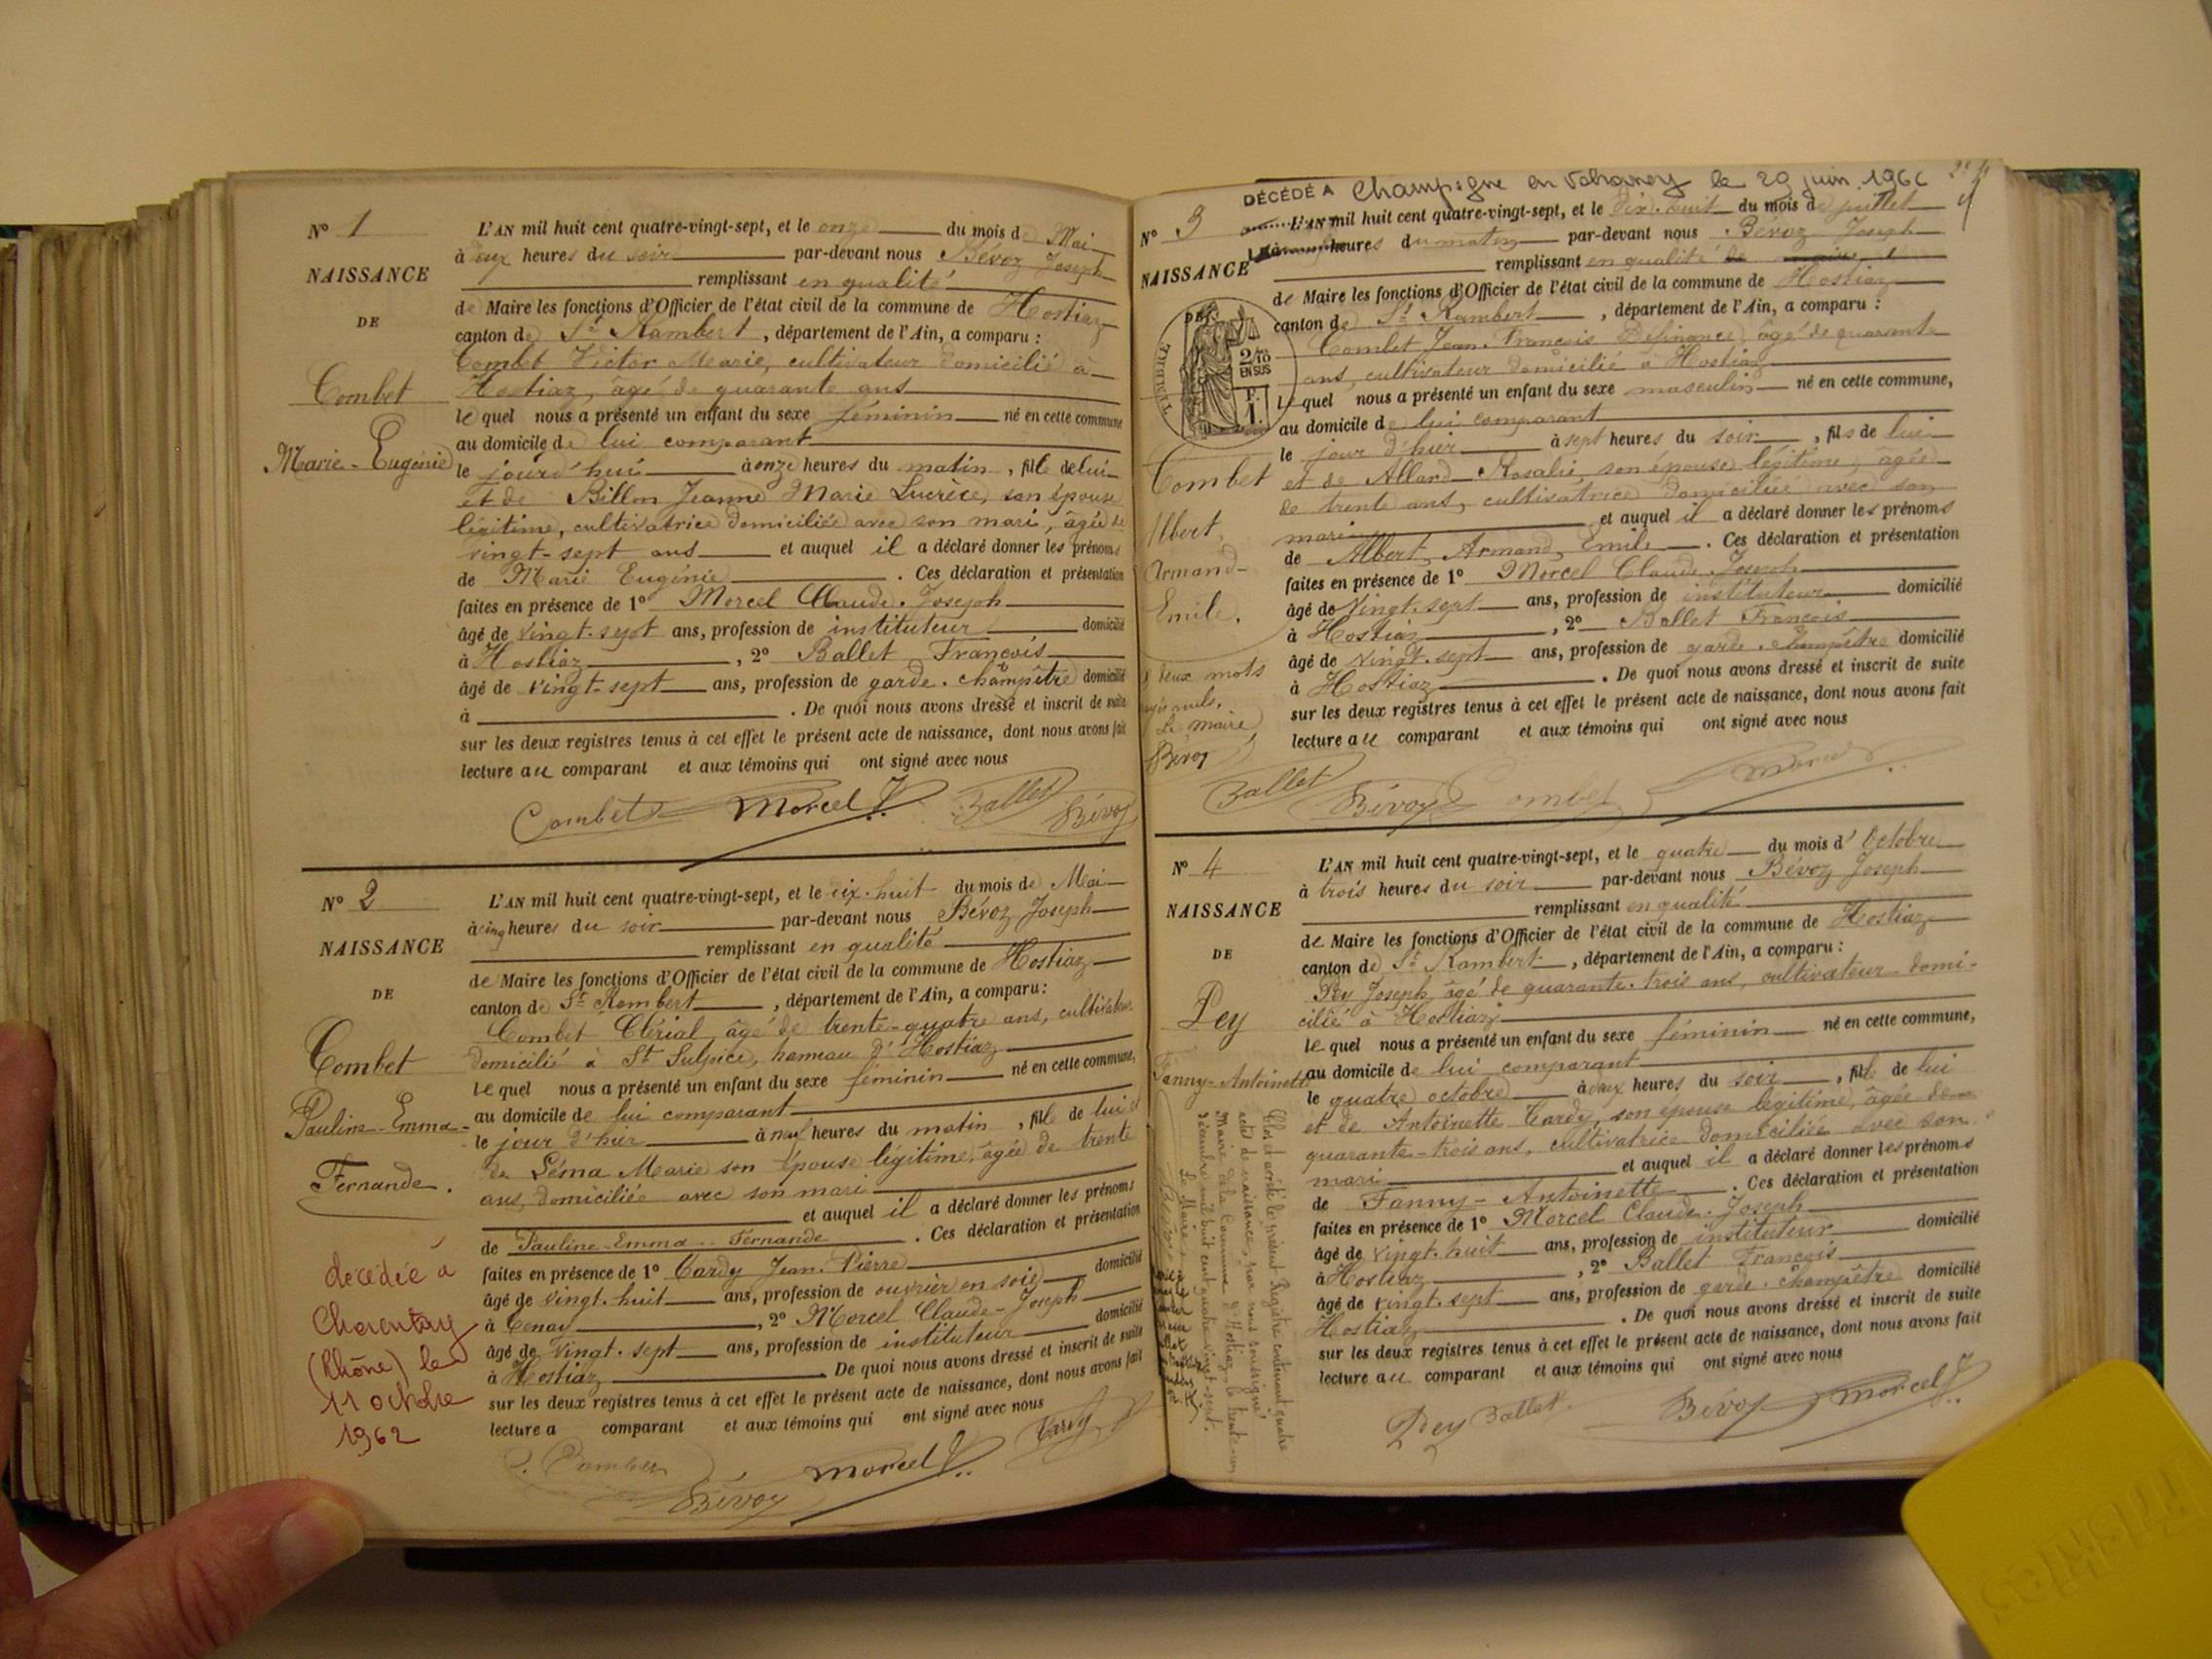 N° 1
NAISSANCE
DE
Combet
Marie-Eugénie
L'AN mil huit cent quatre-vingt-sept, et le onze du mois de Mai
à heures du soir par-devant nous Bévoz Joseph
remplissant en qualité
de Maire les fonctions d'Officier de l'état civil de la commune de Hostiaz
canton de St Rambert, département de l'Ain, a comparu :
Combet Victor Marie, cultivateur domicilié à
Hostiaz, âgé de quarante ans
lequel nous a présenté un enfant du sexe féminin né en cette commune
au domicile de lui comparant
le jourd'hui à onze heures du matin, fille de lui
et de Billon Jeanne Marie Lucrèce, son épouse
légitime, cultivatrice domiciliée avec son mari, âgée de
vingt-sept ans et auquel il a déclaré donner les prénoms
de Marie Eugénie. Ces déclaration et présentation
faites en présence de 1° Morcel Claude-Joseph
âgé de vingt-sept ans, profession de instituteur domicilié
à Hostiaz, 2° Ballet François
âgé de vingt-sept ans, profession de garde-champêtre domicilié
à . De quoi nous avons dressé et inscrit de suite
sur les deux registres tenus à cet effet le présent acte de naissance, dont nous avons fait
lecture au comparant et aux témoins qui ont signé avec nous
Combet Morcel J. Ballet Bévoz
N° 2
NAISSANCE
DE
Combet
Pauline-Emma-
Fernande.
décédée à
Charentay
(Rhône) le
11 octobre
1962
L'AN mil huit cent quatre-vingt-sept, et le dix-huit du mois de Mai
à cinq heures du soir par-devant nous Bévoz Joseph
remplissant en qualité
de Maire les fonctions d'Officier de l'état civil de la commune de Hostiaz
canton de St Rambert, département de l'Ain, a comparu :
Combet Clérial âgé de trente-quatre ans, cultivateur
domicilié à St Sulpice, hameau d'Hostiaz
lequel nous a présenté un enfant du sexe féminin né en cette commune,
au domicile de lui comparant
le jour d'hier à neuf heures du matin, fille de lui et
de Léma Marie son épouse légitime, âgée de trente
ans, domiciliée avec son mari
et auquel il a déclaré donner les prénoms
de Pauline-Emma-Fernande. Ces déclaration et présentation
faites en présence de 1° Cardy Jean-Pierre
âgé de vingt-huit ans, profession de ouvrier en soie domicilié
à Tenay, 2° Morcel Claude-Joseph
âgé de vingt-sept ans, profession de instituteur domicilié
à Hostiaz. De quoi nous avons dressé et inscrit de suite
sur les deux registres tenus à cet effet le présent acte de naissance, dont nous avons fait
lecture a comparant et aux témoins qui ont signé avec nous
Combet Morcel J. Cardy
Bévoz
DÉCÉDÉ A Champagne en Valromey le 29 juin 1966
N° 3
NAISSANCE
TIMBRE
2/10
EN SUS
Combet
Albert
Armand-
Emile.
deux mots
nuls,
Le maire
Bévoz
L'AN mil huit cent quatre-vingt-sept, et le dix-huit du mois de juillet
heures du matin par-devant nous Bévoz Joseph
remplissant en qualité de
de Maire les fonctions d'Officier de l'état civil de la commune de Hostiaz
canton de St Rambert, département de l'Ain, a comparu :
Combet Jean-François Définance, âgé de quarante
ans, cultivateur domicilié à Hostiaz
lequel nous a présenté un enfant du sexe masculin né en cette commune,
au domicile de lui comparant
le jour d'hier à sept heures du soir, fils de lui
et de Allard Rosalie, son épouse légitime, âgée
de trente ans, cultivatrice domiciliée avec son
mari et auquel il a déclaré donner les prénoms
de Albert, Armand, Emile. Ces déclaration et présentation
faites en présence de 1° Morcel Claude-Joseph
âgé de vingt-sept ans, profession de instituteur domicilié
à Hostiaz, 2° Ballet François
âgé de vingt-sept ans, profession de garde-champêtre domicilié
à Hostiaz. De quoi nous avons dressé et inscrit de suite
sur les deux registres tenus à cet effet le présent acte de naissance, dont nous avons fait
lecture au comparant et aux témoins qui ont signé avec nous
Ballet Bévoz Combet Morcel
N° 4
NAISSANCE
DE
Pey
Fanny-Antoinette
Clos et arrêté le présent Registre contenant quatre
actes de naissance, par nous soussigné
Maire de la Commune d'Hostiaz, le trente-un
décembre mil huit cent quatre-vingt-sept.
Le Maire
L'AN mil huit cent quatre-vingt-sept, et le quatre du mois d'Octobre
à trois heures du soir par-devant nous Bévoz Joseph
remplissant en qualité
de Maire les fonctions d'Officier de l'état civil de la commune de Hostiaz
canton de St Rambert, département de l'Ain, a comparu :
Pey Joseph, âgé de quarante-trois ans, cultivateur domi-
cilié à Hostiaz
lequel nous a présenté un enfant du sexe féminin né en cette commune,
au domicile de lui comparant
le quatre octobre à deux heures du soir, fille de lui
et de Antoinette Cardy, son épouse légitime, âgée de
quarante-trois ans, cultivatrice domiciliée avec son
mari et auquel il a déclaré donner les prénoms
de Fanny-Antoinette. Ces déclaration et présentation
faites en présence de 1° Morcel Claude-Joseph
âgé de vingt-huit ans, profession de instituteur domicilié
à Hostiaz, 2° Ballet François
âgé de vingt-sept ans, profession de garde-champêtre domicilié
Hostiaz. De quoi nous avons dressé et inscrit de suite
sur les deux registres tenus à cet effet le présent acte de naissance, dont nous avons fait
lecture au comparant et aux témoins qui ont signé avec nous
Pey Ballet Bévoz Morcel J.